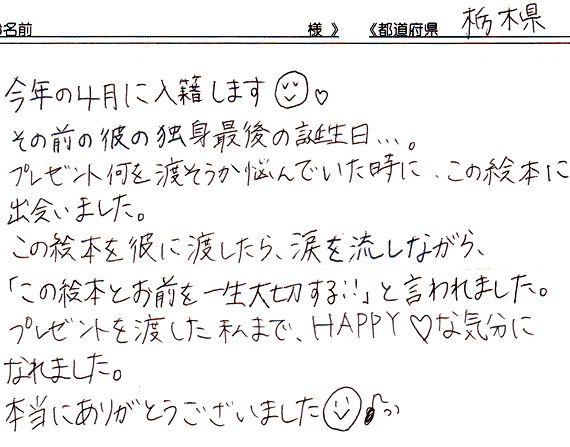 名前 様 》 《都道府県 栃木県
今年の4月に入籍します♡
その前の彼の独身最後の誕生日…。
プレゼント何を渡そうか悩んでいた時に、この絵本に
出会いました。
この絵本を彼に渡したら、涙を流しながら、
「この絵本とお前を一生大切する!!」と言われました。
プレゼントを渡した私まで、HAPPY♡な気分に
なれました。
本当にありがとうございました♪